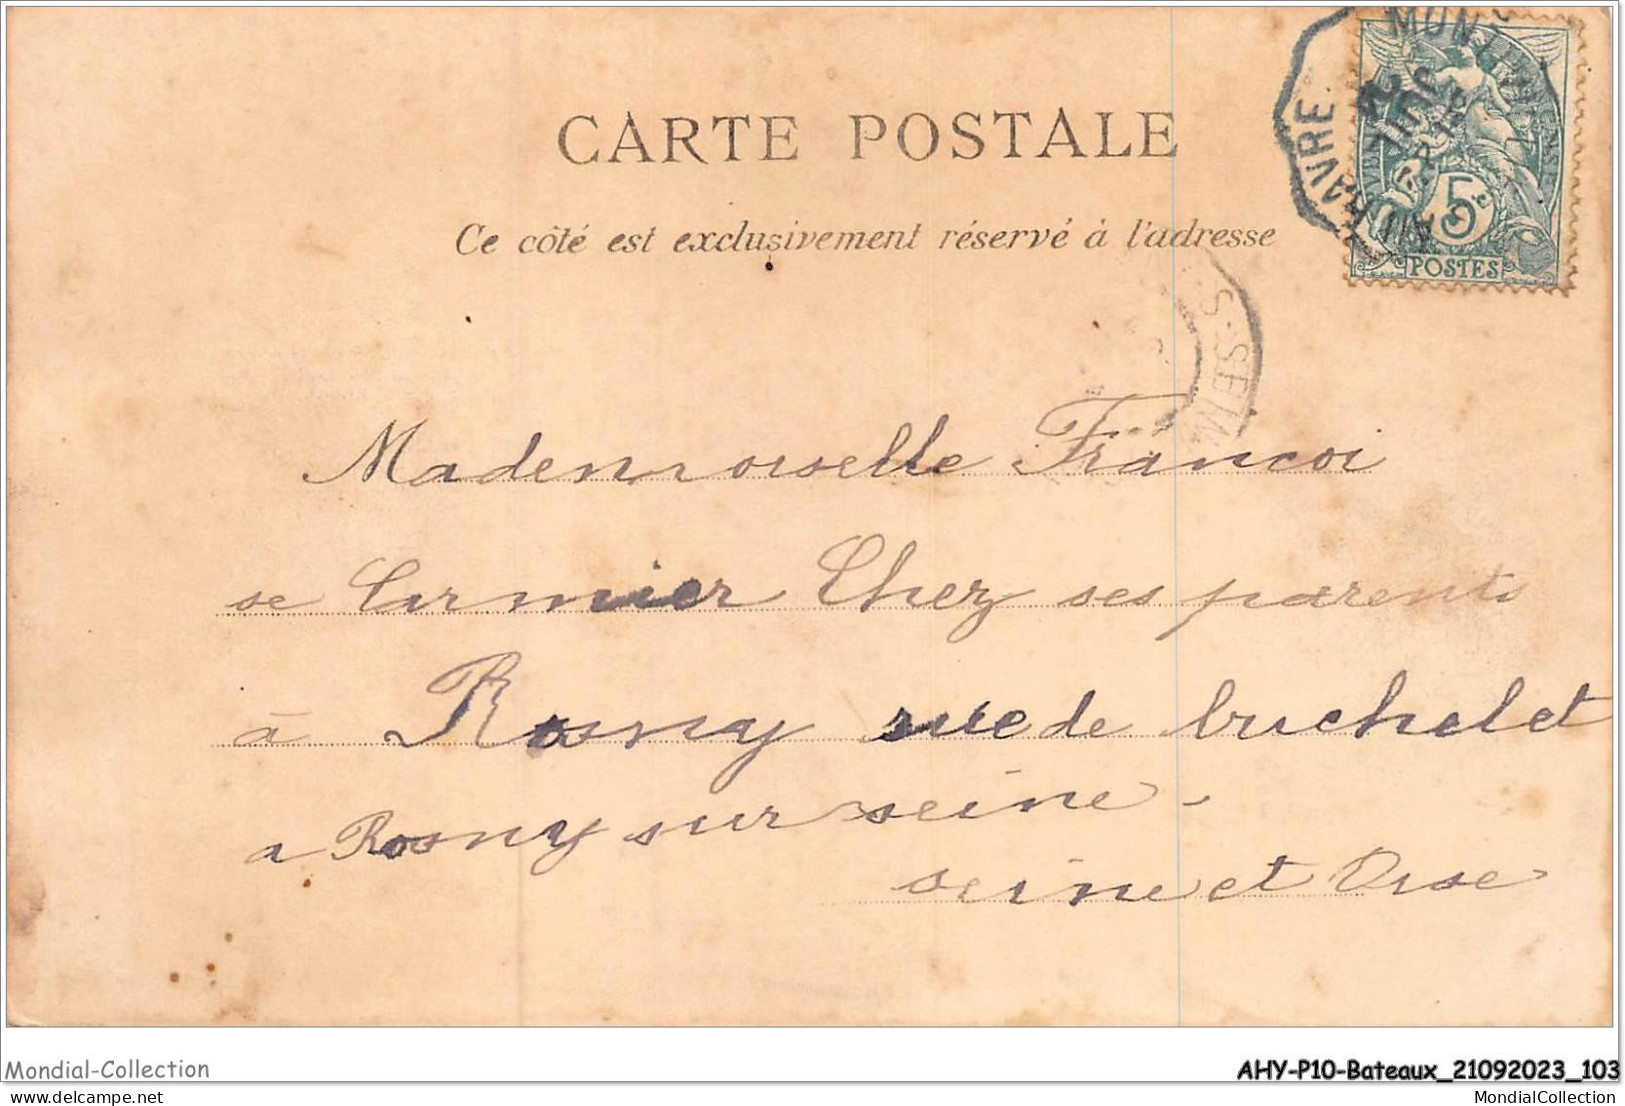 CARTE POSTALE
Ce côté est exclusivement réservé à l'adresse
HAVRE
JUIL
5
POSTES
S-SEINE
Mademoiselle Francoi
se Larmier Chez ses parents
à Rosny rue de buchelet
a Rosny sur seine -
seine et Oise
Mondial-Collection
AHY-P10-Bateaux_21092023_103
MondialCollection